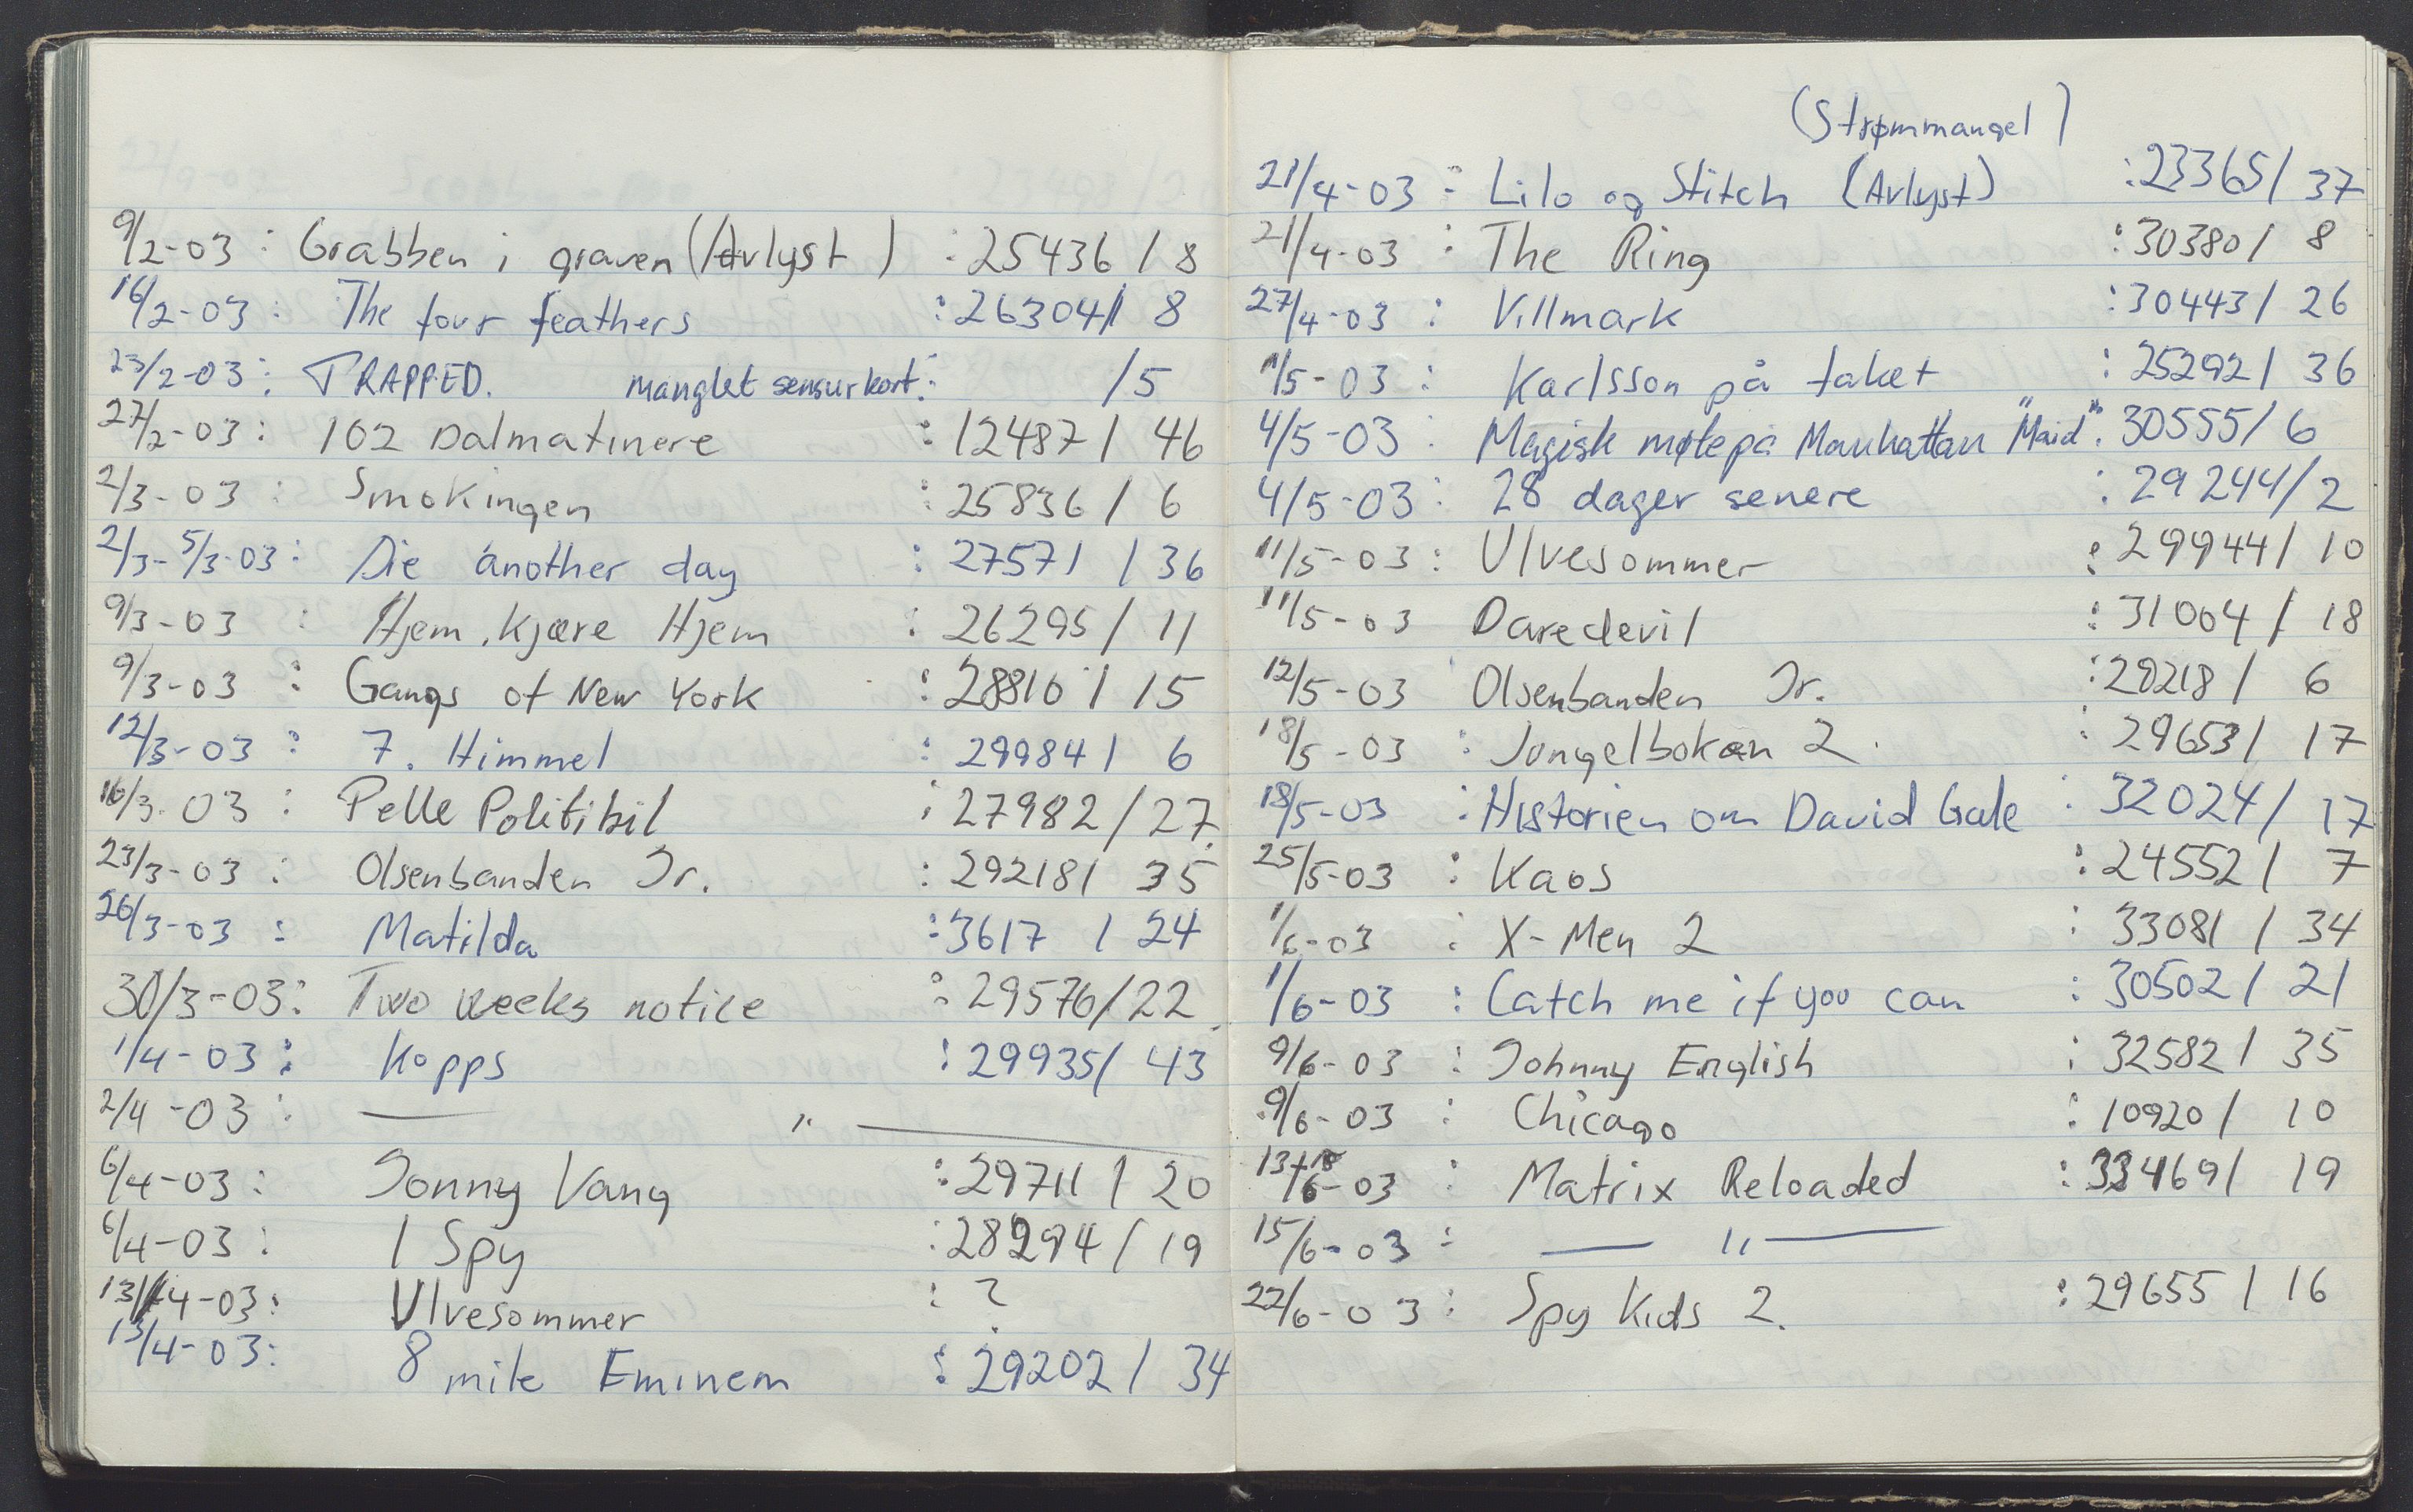 9/2-03 : Grabben i graven (Avlyst) : 25436 / 8
16/2-03 : The four feathers : 26304 / 8
23/2-03 : TRAPPED. manglet sensurkort : /5
27/2-03 : 102 Dalmatinere : 12487 / 46
2/3-03 : Smokingen : 25836 / 6
2/3-5/3-03 : Die another day : 27571 / 36
9/3-03 : Hjem, kjære Hjem : 26295 / 11
9/3-03 : Gangs of New York : 28810 / 15
12/3-03 : 7. Himmel : 29984 / 6
16/3-03 : Pelle Politibil : 27982 / 27
23/3-03 : Olsenbanden Jr. : 29218 / 35
26/3-03 : Matilda : 3617 / 24
30/3-03 : Two weeks notice : 29576 / 22
1/4-03 : Kopps : 29935 / 43
2/4-03 : — " —
6/4-03 : Jonny Vang : 29711 / 20
6/4-03 : I Spy : 28294 / 19
13/4-03 : Ulvesommer : ?
13/4-03 : 8 mile Eminem : 29202 / 34
(Strømmangel)
21/4-03 : Lilo og Stitch (Avlyst) : 23365 / 37
21/4-03 : The Ring : 30380 / 8
27/4-03 : Villmark : 30443 / 26
1/5-03 : Karlsson på taket : 25292 / 36
4/5-03 : Magisk møte på Manhattan "Maid" : 30555 / 6
4/5-03 : 28 dager senere : 29244 / 2
11/5-03 : Ulvesommer : 29944 / 10
11/5-03 Daredevil : 31004 / 18
12/5-03 Olsenbanden Jr. : 29218 / 6
18/5-03 : Jungelboken 2 : 29653 / 17
18/5-03 : Historien om David Gale : 32024 / 17
25/5-03 : Kaos : 24552 / 7
1/6-03 : X-Men 2 : 33081 / 34
1/6-03 : Catch me if you can : 30502 / 21
9/6-03 : Johnny English : 32582 / 35
9/6-03 : Chicago : 10920 / 10
13/6-03 : Matrix Reloaded : 33469 / 19
15/6-03 : — " —
22/6-03 : Spy Kids 2. : 29655 / 16